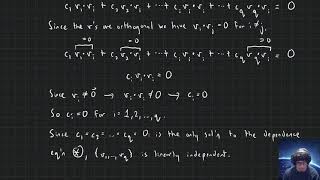 c₁ v₁·vᵢ + c₂ v₂·vᵢ + ··· + cᵢ vᵢ·vᵢ + ··· + c_q v_q·vᵢ = 0
Since the v's are orthogonal we have vᵢ·vⱼ = 0 for i ≠ j.
=0 =0 =0
c₁ v₁·vᵢ + c₂ v₂·vᵢ + ··· + cᵢ vᵢ·vᵢ + ··· + c_q v_q·vᵢ = 0
cᵢ vᵢ·vᵢ = 0
Since vᵢ ≠ 0⃗ → vᵢ·vᵢ ≠ 0 → cᵢ = 0
So cᵢ = 0 for i = 1, 2, ..., q.
Since c₁ = c₂ = ... = c_q = 0 is the only sol'n to the dependence
eq'n ⊛, {v₁, ..., v_q} is linearly independent.